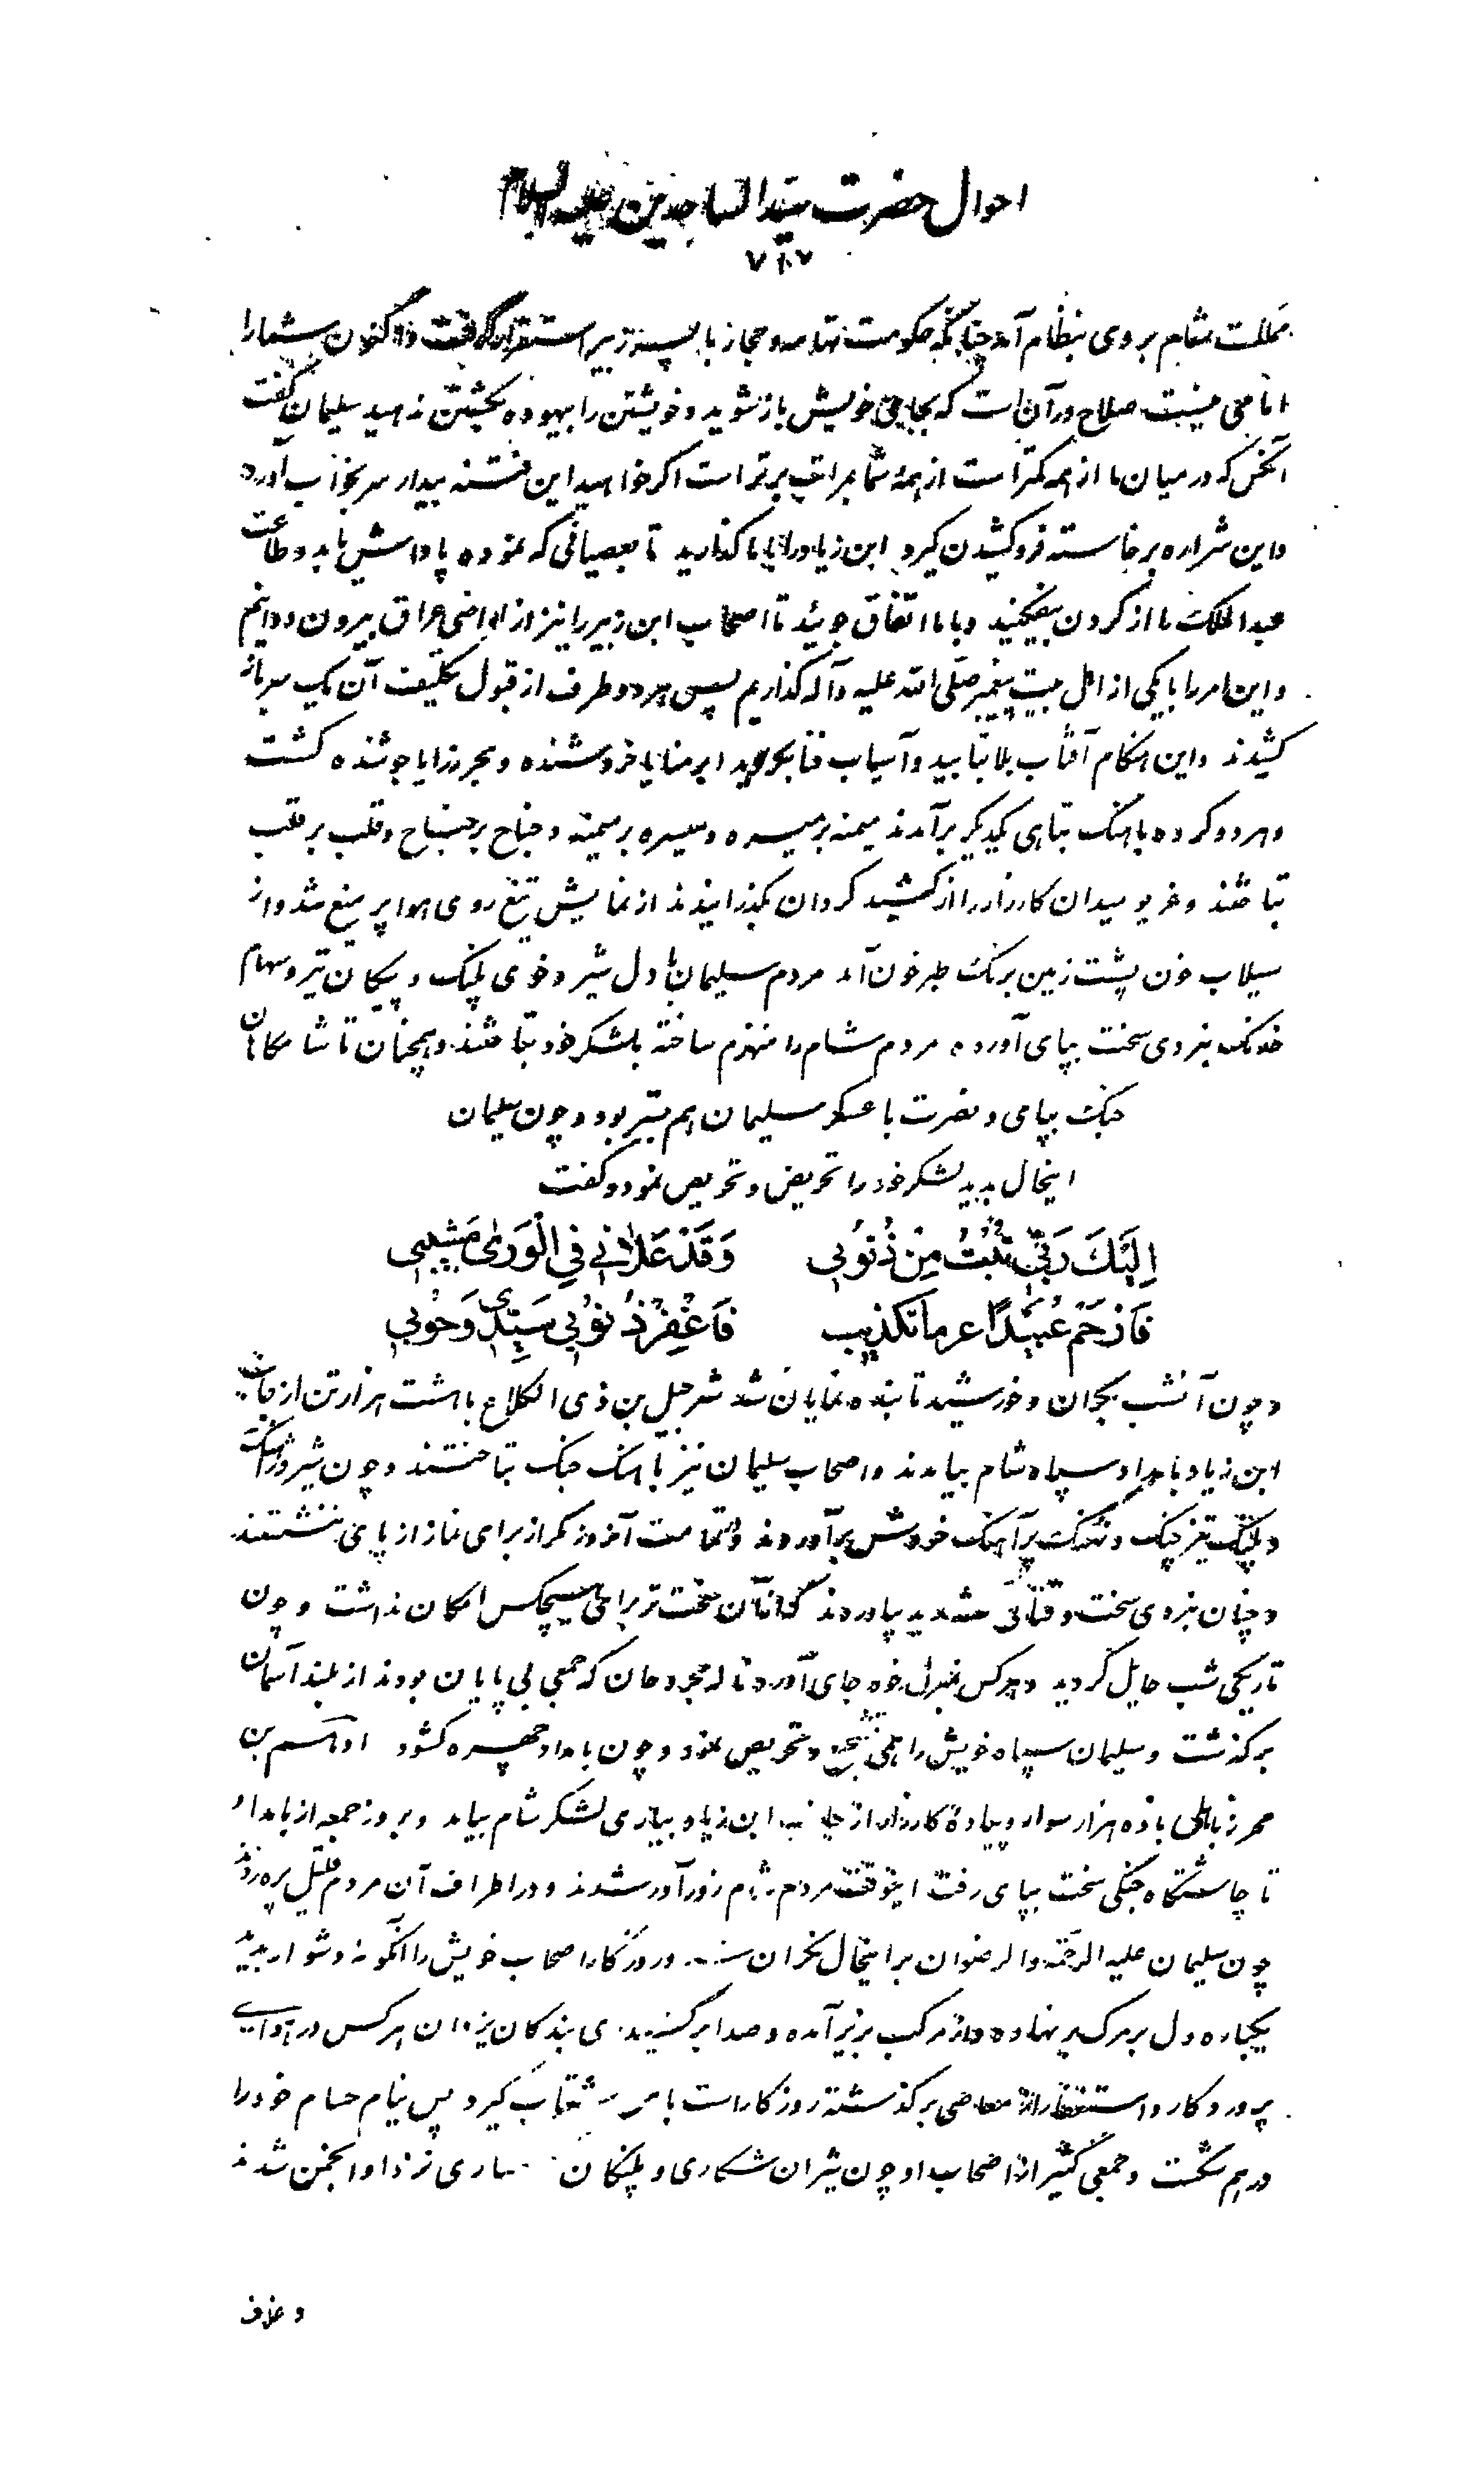 احوال حضرت سید الساجدین علیه السلام
۷۸۷
مملکت شام بر وی بنظام آمد چنانکه حکومت تهامه و حجاز با پسر زبیر استقرار گرفت و اکنون شما را
امامی نیست صلاح در آن است که بجای خویش باز شوید و خویشتن را بیهوده بکشتن ندهید سلیمان گفت
آنکس که در میان ما از همه کمتر است از همهٔ شما بمراتب برتر است اگر خواهید این فتنه بیدار سر بخواب آورد
و این شراره برخاسته فروکشیدن گیرد ابن زیاد را با ما گذارید تا بعصیانی که نموده پاداش یابد و طاعت
عبدالملک را از گردن بیفکنید و با ما اتفاق جوئید تا اصحاب ابن زبیر را نیز از اراضی عراق بیرون دوانیم
و این امر را با یکی از اهل بیت پیغمبر صلی الله علیه و آله گذاریم پس هر دو طرف از قبول تکلیف آن یک سر باز
کشیدند و این هنگام آفتاب بلا بتابید و آسیاب فنا بگردید ابر منایا خروشنده و بحر رزایا جوشنده گشت
و هر دو گروه باهنگ تباهی یکدیگر برآمدند میمنه بر میسره و میسره بر میمنه و جناح بر جناح و قلب بر قلب
بتاختند و غریو میدان کارزار را از گنبد گردان بگذرانیدند از نمایش تیغ روی هوا پر میغ شد و از
سیلاب خون پشت زمین برنگ طبرخون آمد مردم سلیمان با دل شیر و خوی پلنگ و پیکان تیر و سهام
خدنگ نبردی سخت بپای آورده مردم شام را منهزم ساخته بلشکر خود بتاختند و همچنان تا شامگاهان
جنگ بپای و نصرت با عسکر سلیمان همی بود و چون سلیمان
اینحال بدید لشکر خود را تحریض و تحریص نمود و گفت
اِلَیْکَ رَبّی تُبْتُ مِنْ ذُنُوبی وَقَدْ عَلانی فِی الْوَری مَشیبی
فَارْحَمْ عُبَیْدًا عرما تکذیب فَاغْفِرْ ذُنُوبی سَیِّدی وَحُوبی
و چون آنشب بکران و خورشید تابنده نمایان شد شرحبیل بن ذی الکلاع با هشت هزار تن از جانب
ابن زیاد بامداد سپاه شام بیامدند و اصحاب سلیمان نیز باهنگ جنگ بتاختند و چون شیر
و پلنگ تیز چنگ و نهنگ پرآهنگ خروش برآوردند و تمامت آنروز مگر از برای نماز از پای ننشستند
و چنان نبردی سخت و قتالی شدید بپاوردند که از آن سخت تر برای هیچکس امکان نداشت و چون
تاریکی شب حایل گردید و هر کس بمنزل خود جای آورد ناله مجروحان که جمعی بی پایان بودند از بلند آسمان
برگذشت و سلیمان سپاه خویش را همی تشجیع و تحریص نمود و چون بامداد چهره گشود ادهم بن
محرز باهلی با ده هزار سوار و پیادهٔ کارزار از جانب ابن زیاد بیاری لشکر شام بیامد و بروز جمعه از بامداد
تا چاشتگاه جنگی سخت بپای رفت اینوقت مردم شام زورآور شدند و در اطراف آن مردم قلیل پره زدند
چون سلیمان علیه الرحمة و الرضوان بر اینحال نگران شد و روزگار اصحاب خویش را آنگونه دشوار بدید
یکباره دل بر مرگ برنهاده و از مرکب بزیر آمده و صدا برکشید ای بندگان یزدان هر کس در
پروردگار و استغفار از معاصی برگذشته روزگار است با من شتاب گیرد پس نیام حسام خود را
درهم شکست و جمعی کثیر از اصحاب او چون شیران شکاری و پلنگان نزد او انجمن شدند
و غلاف